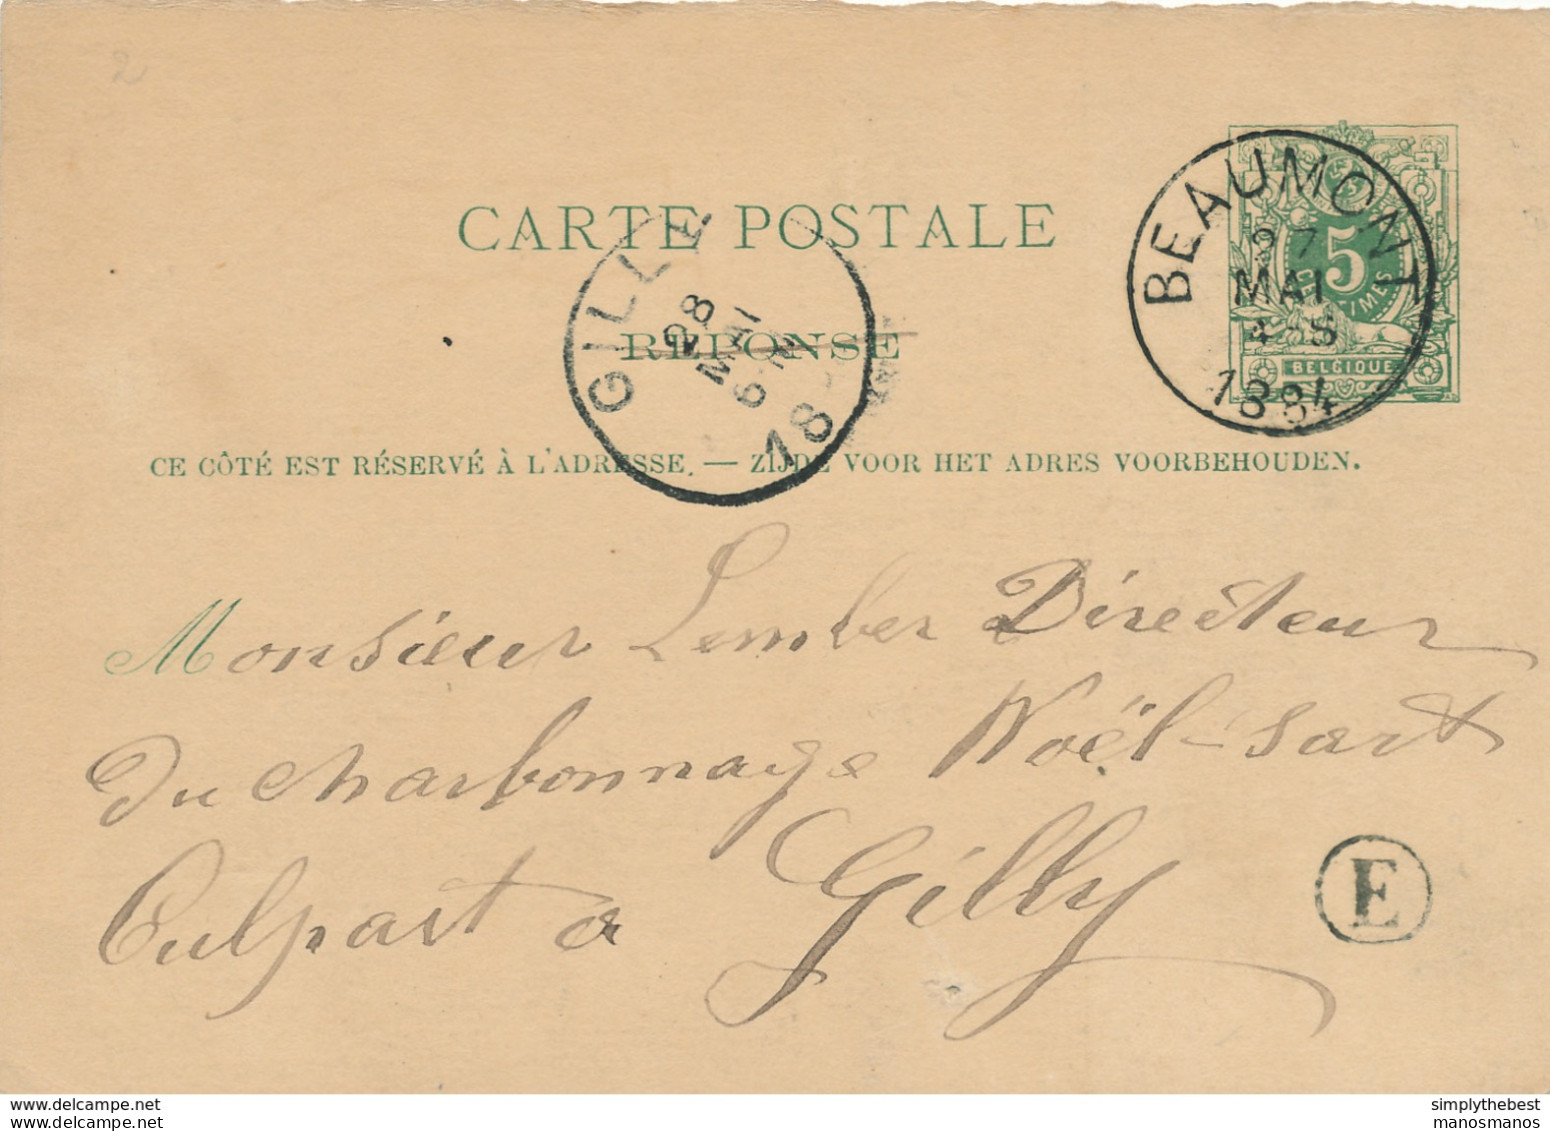 2
CARTE POSTALE
BEAUMONT
27
MAI
4-S
1884
5
CENTIMES
BELGIQUE
GILLY
28
MAI
6-M
18
RÉPONSE
CE CÔTÉ EST RÉSERVÉ À L'ADRESSE. — ZIJDE VOOR HET ADRES VOORBEHOUDEN.
Monsieur Lember Directeur
Du charbonnage Noël-Sart
Culpart a Gilly
E
delcampe.net
The collector's marketplace
simplythebest
manosmanos